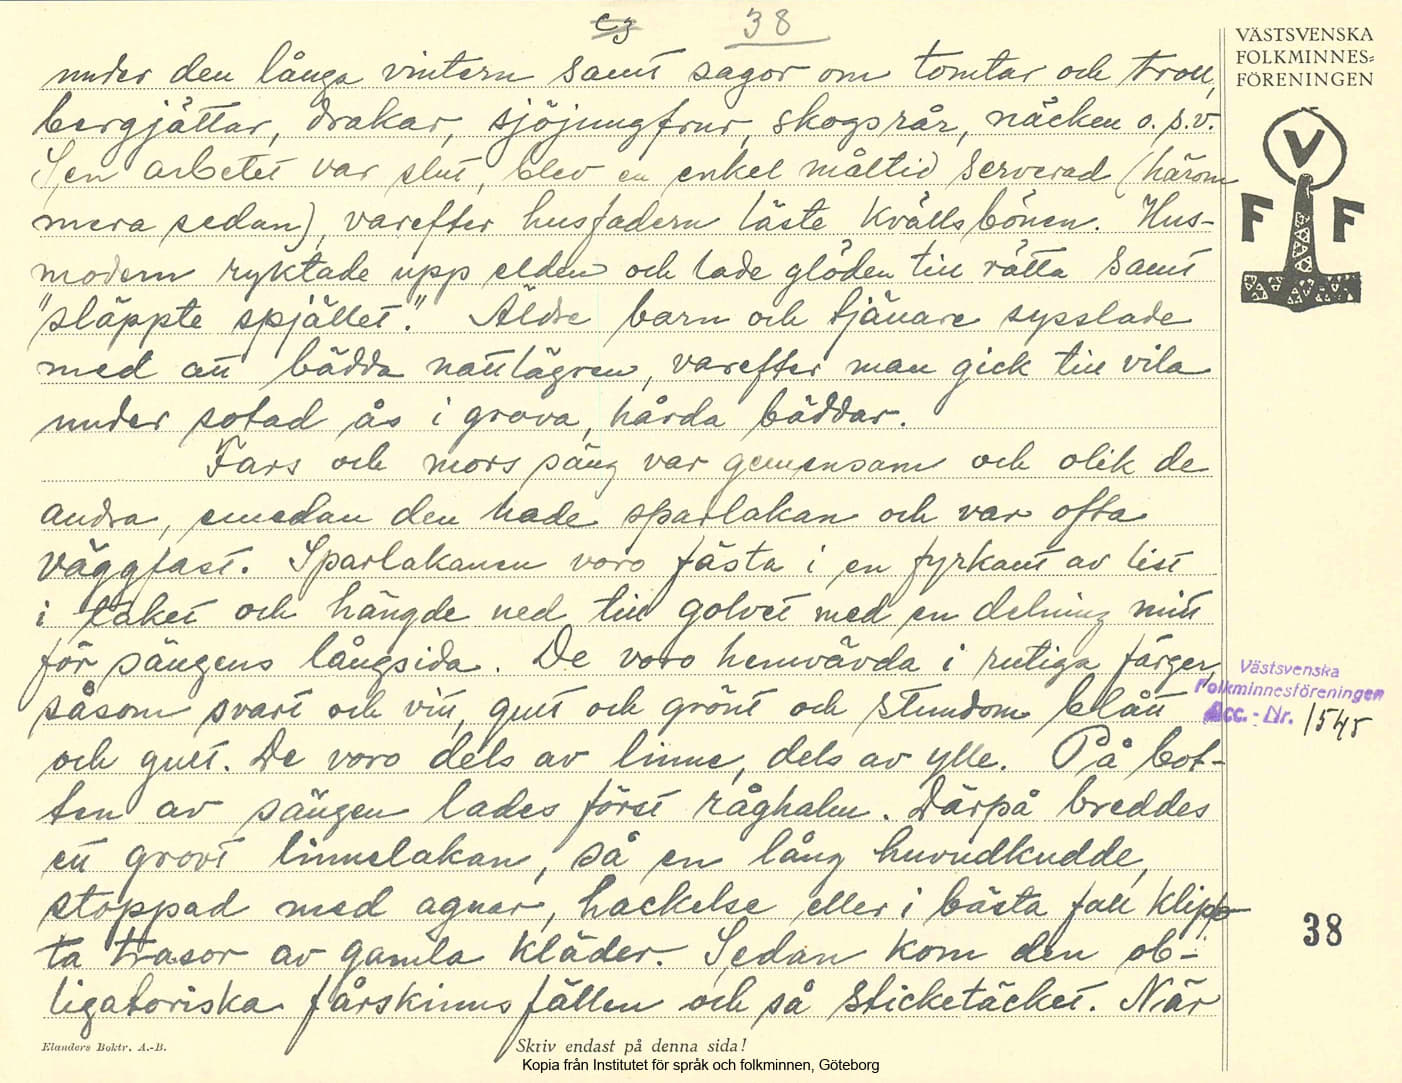 38
VÄSTSVENSKA
FOLKMINNES=
FÖRENINGEN
under den långa vintern samt sagor om tomtar och troll,
bergjättar, drakar, sjöjungfrur, skogsrår, näcken o.s.v.
Sen arbetet var slut, blev en enkel måltid serverad (härom
mera sedan), varefter husfadern läste kvällsbönen. Hus-
modern ryktade upp elden och lade glöden till rätta samt
"släppte spjället." Äldre barn och tjänare sysslade
med att bädda nattlägren, varefter man gick till vila
under sotad ås i grova, hårda bäddar.
Fars och mors säng var gemensam och olik de
andra, emedan den hade sparlakan och var ofta
väggfast. Sparlakanen voro fästa i en fyrkant av list
i taket och hängde ned till golvet med en delning mitt
för sängens långsida. De voro hemvävda i rutiga färger,
såsom svart och vitt, gult och grönt och stundom blått
och gult. De voro dels av linne, dels av ylle. På bot-
ten av sängen lades först råghalm. Därpå breddes
ett grovt linnelakan, så en lång huvudkudde,
stoppad med agnar, hackelse eller i bästa fall klipp
ta trasor av gamla kläder. Sedan kom den ob-
ligatoriska fårskinnsfällen och så sticketäcket. När
V
F F
Västsvenska
Folkminnesföreningen
Acc. - Nr. 1545
38
Elanders Boktr. A.-B.
Skriv endast på denna sida!
Kopia från Institutet för språk och folkminnen, Göteborg